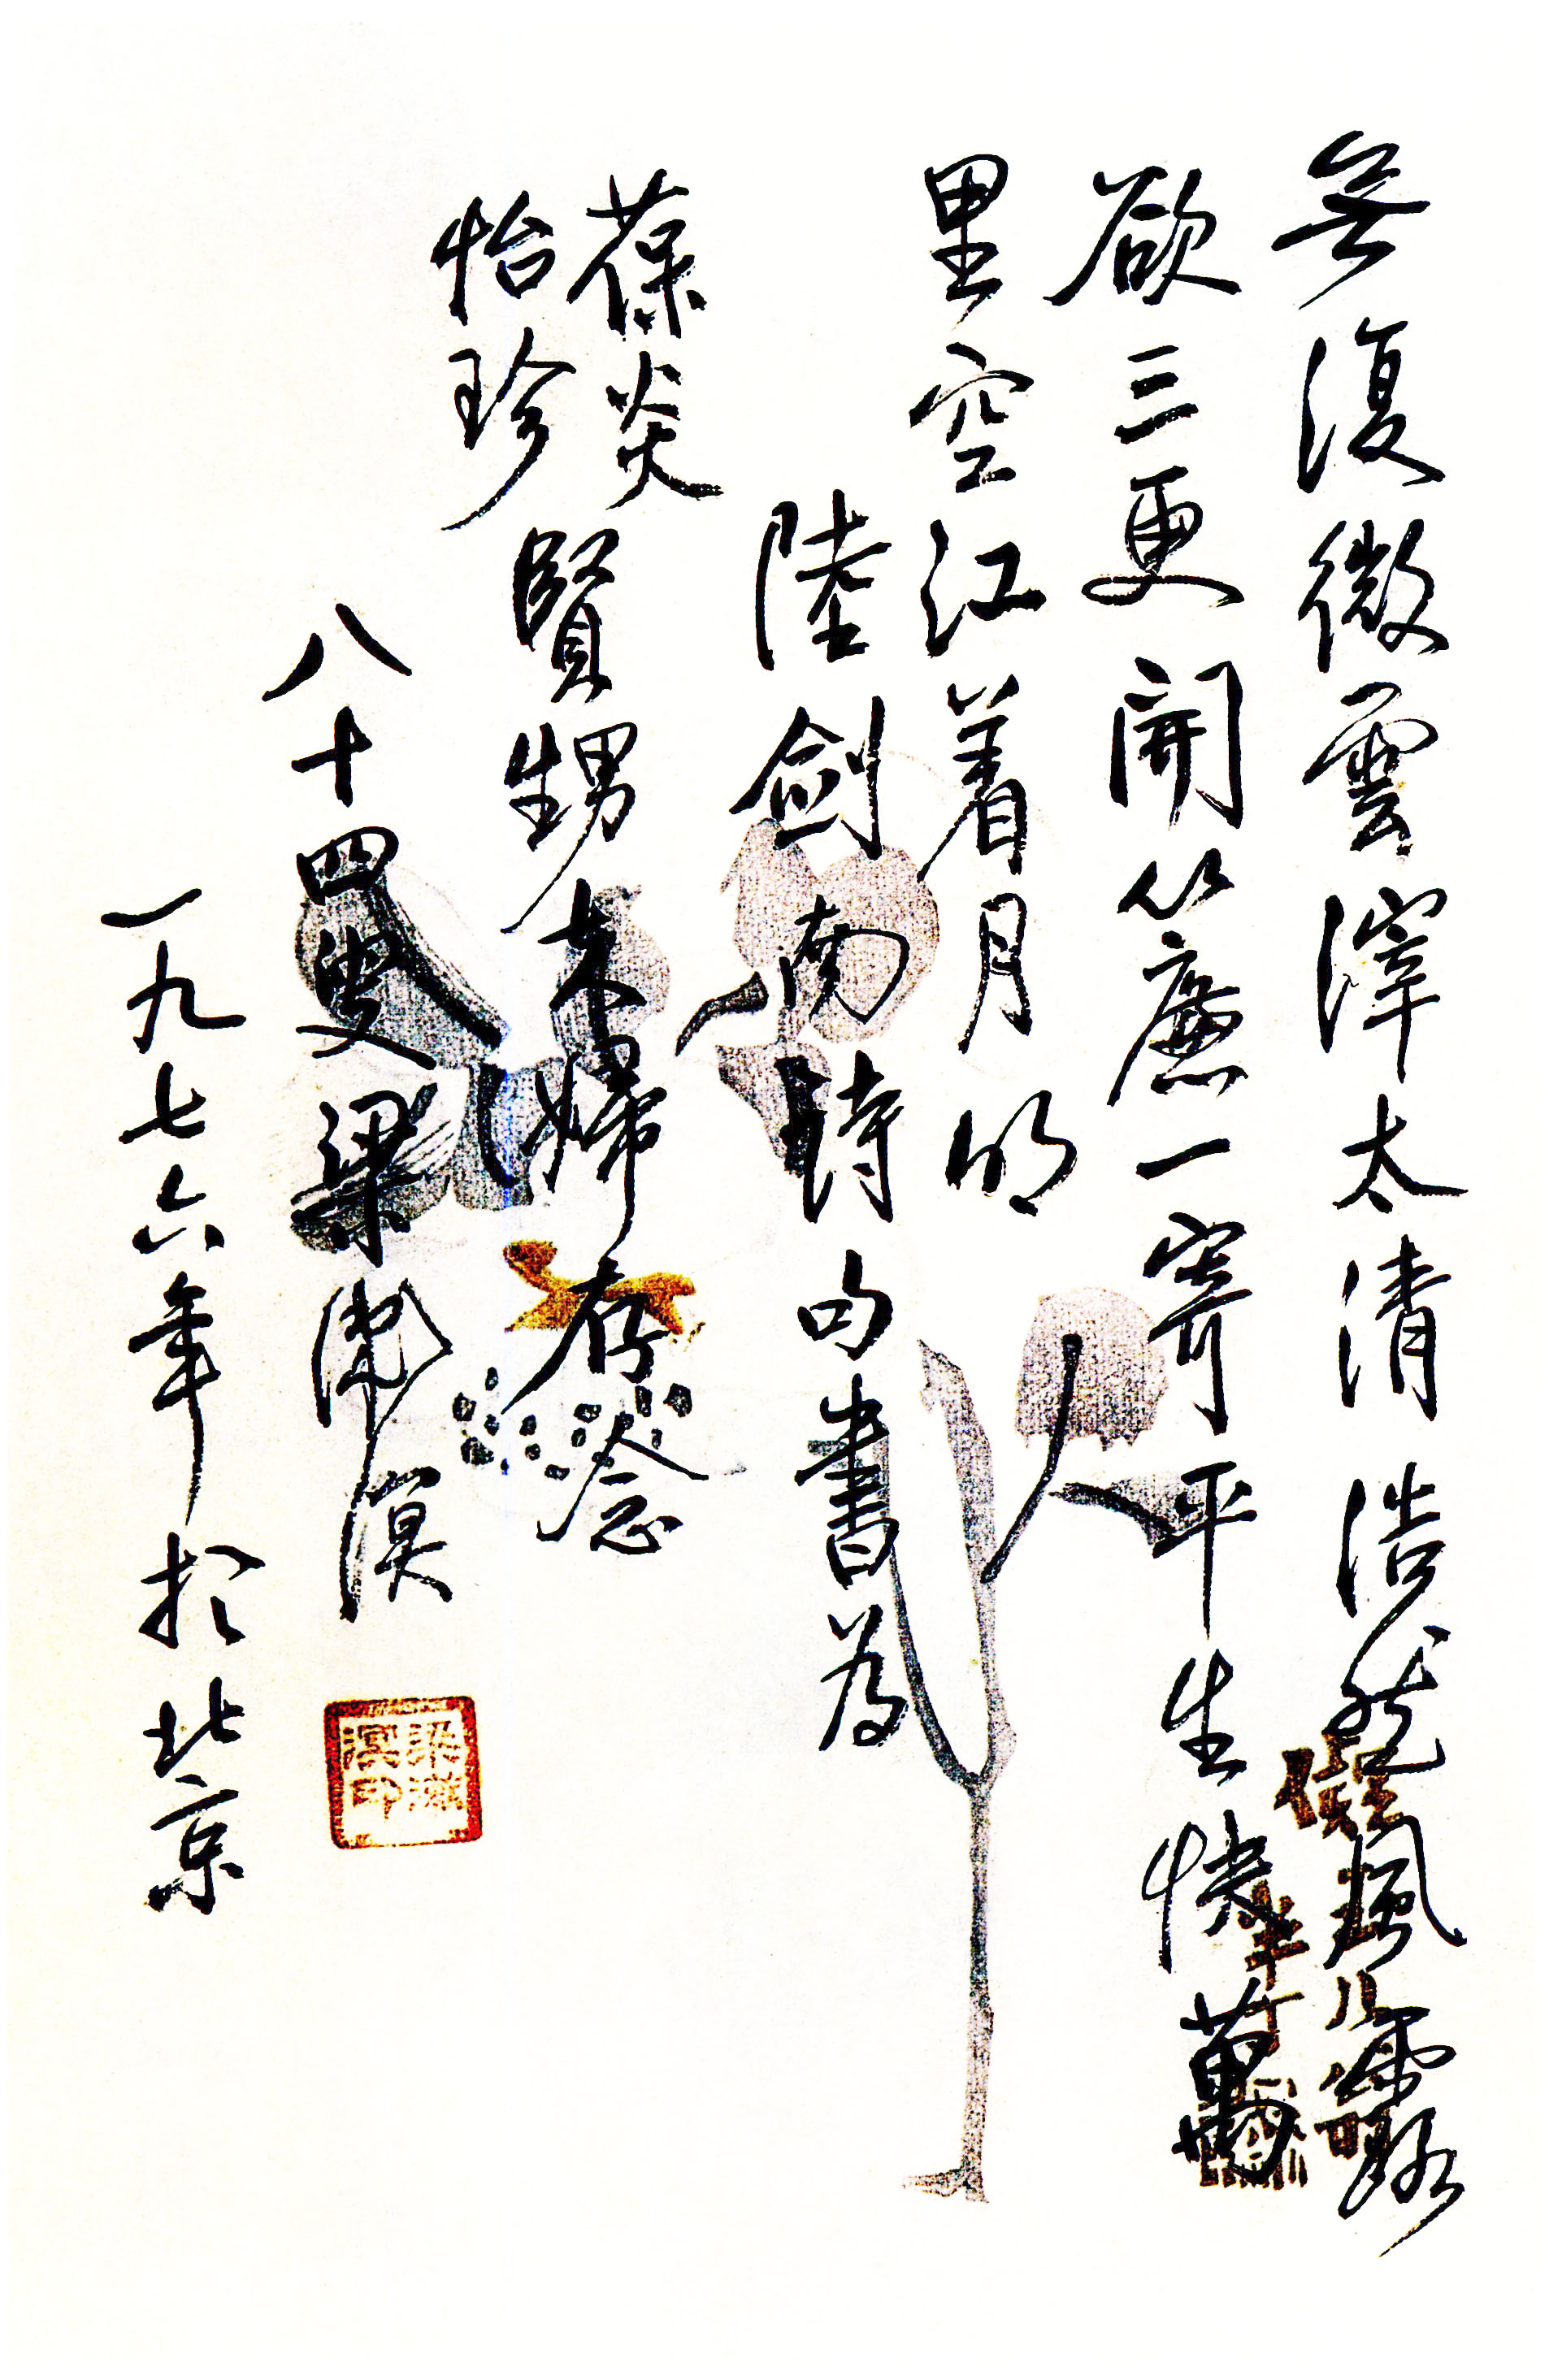 無復微雲滓太清浩然風露
欲三更開簾一寄平生快萬
里空江着月明
陸劍南詩句書為
葆炎
怡珍
賢甥夫婦存念
八十四叟梁漱溟
一九七六年於北京
梁漱
溟印